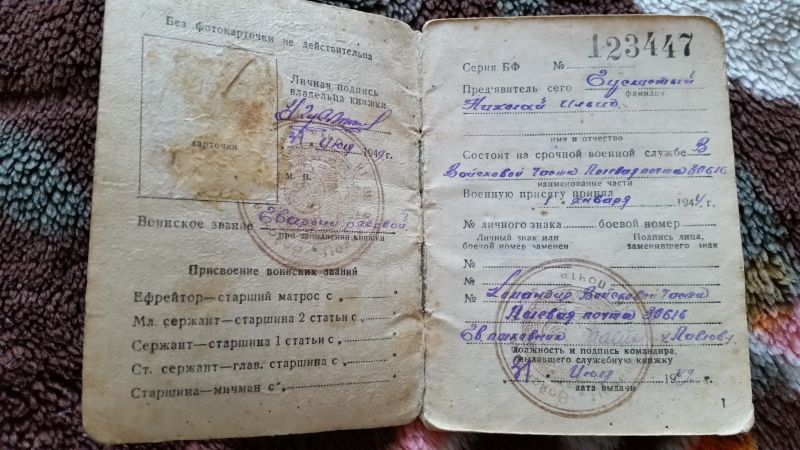 Без фотокарточки не действительна
Личная подпись
владельца книжки
31 Июля 1949 г.
карточки
М. П.
Воинское звание Гвардии рядовой
при заполнении книжки
Присвоение воинских званий
Ефрейтор—старший матрос с „
Мл. сержант—старшина 2 статьи с „
Сержант—старшина 1 статьи с „
Ст. сержант—глав. старшина с „
Старшина—мичман с „
123447
Серия БФ №
Пред'явитель сего
фамилия
Николай
имя и отчество
Состоит на срочной военной службе В
Войсковой части Полевая почта 80616
наименование части
Военную присягу принял
1 января 1944 г.
№ личного знака боевой номер
Личный знак или
боевой номер заменен
Подпись лица,
заменившего знак
№
№
Командир Войсковой части
Полевая почта 80616
Гв полковник Павлов
должность и подпись командира,
выдавшего служебную книжку
31 Июля 1949 г.
дата выдачи
1